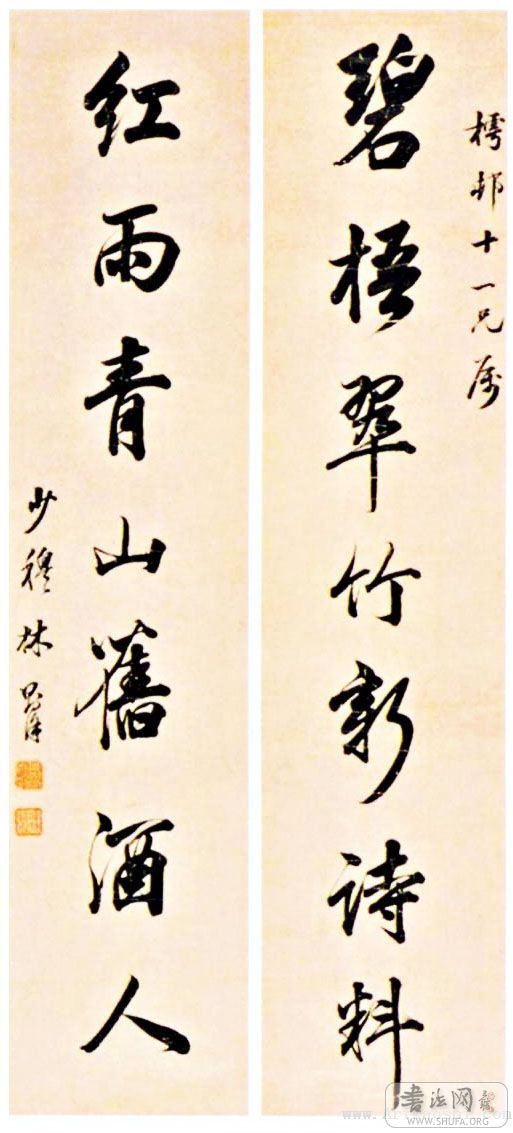 樗邨十一兄属
碧梧翠竹新詩料
紅雨青山舊酒人
少穆林則徐
書法网
WWW.SHUFA.ORG